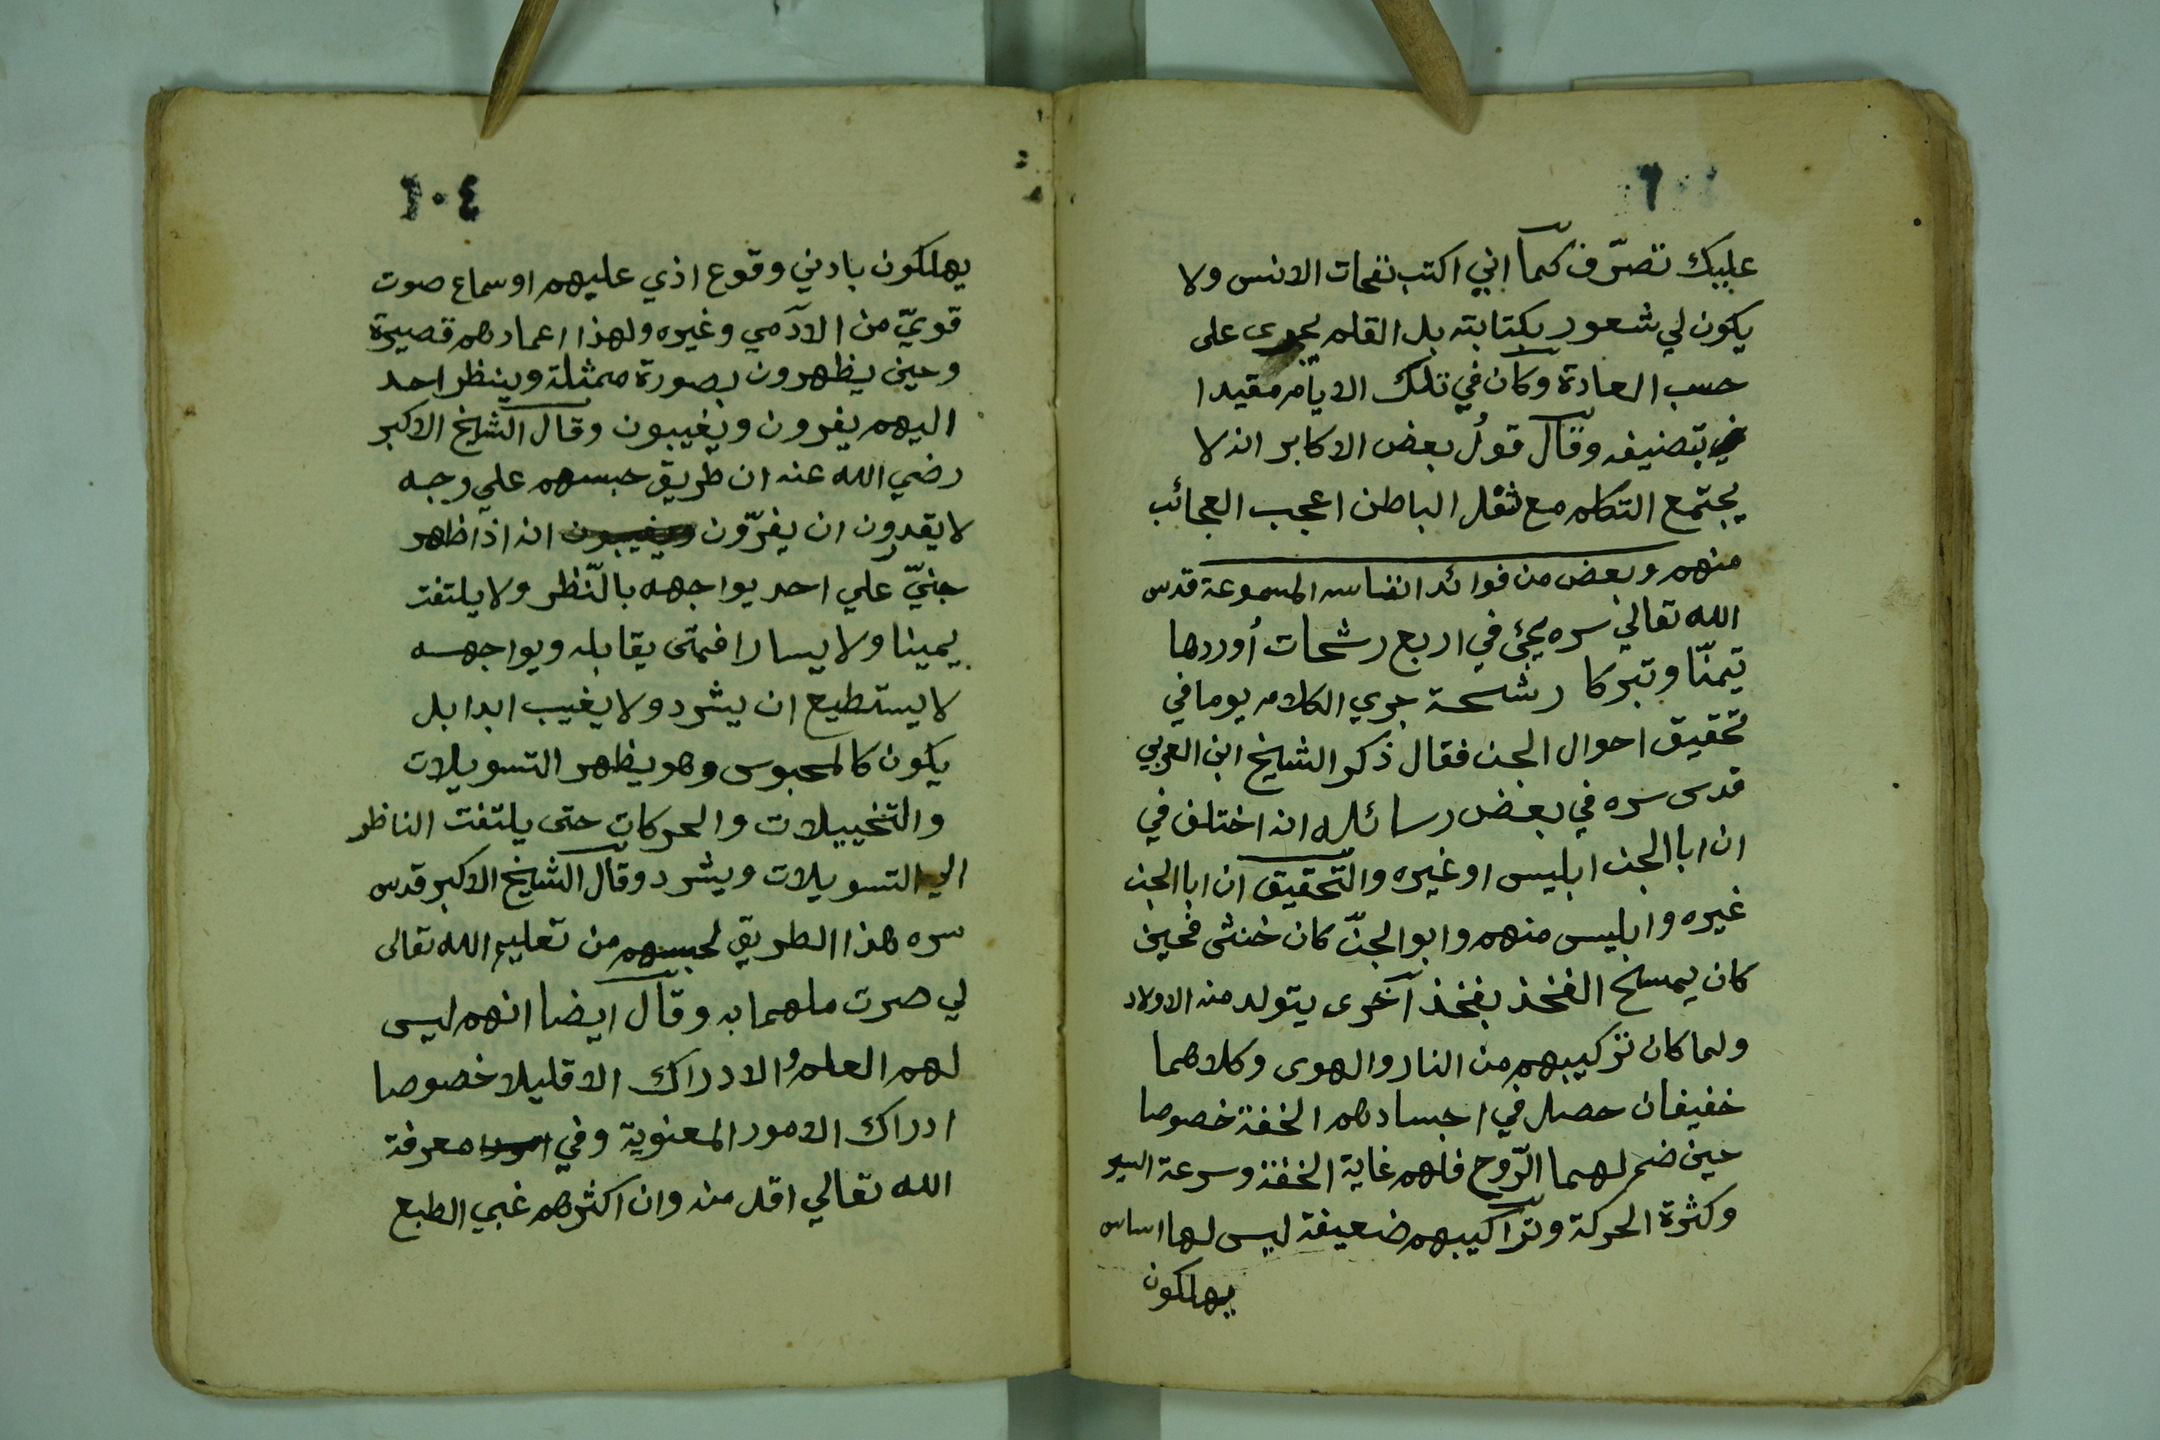 عليك تصرّف كما اني اكتب نفحات الانس ولا
يكون لي شعور بكتابته بل القلم يجرى على
حسب العادة وكان في تلك الايام مقيدا
بتصنيفه وقال قول بعض الاكابر انه لا
يجتمع التكلم مع ثقل الباطن اعجب العجائب
منهم وبعض من فوائد انفاسه المسموعة قدس
الله تعالي سره يجئ في اربع رشحات أوردها
تيمنّا وتبركا رشحة جري الكلام يوما في
تحقيق احوال الجن فقال ذكر الشيخ ابن العربي
قدس سره في بعض رسائله انه اختلف في
ان ابا الجن ابليس او غيره والتحقيق ان ابا الجن
غيره وابليس منهم وابو الجنّ كان خنثى فحين
كان يمسح الفخذ بفخذ آخرى يتولد منه الاولاد
ولما كان تركيبهم من النار والهوى وكلاهما
خفيفان حصل في اجسادهم الخفة خصوصا
حين ضم لهما الرّوح فلهم غاية الخفة وسرعة السير
وكثرة الحركة وتراكيبهم ضعيفة ليس لها اساس
يهلكون
٢٠٤
يهلكون بادني وقوع اذي عليهم او سماع صوت
قويّ من الآدمي وغيره ولهذا اعمارهم قصيرة
وحين يظهرون بصورة ممثلة وينظر احد
اليهم يفرون ويغيبون وقال الشيخ الاكبر
رضي الله عنه ان طريق حبسهم علي وجه
لا يقدرون ان يفرّون ويغيبون انه اذا ظهر
جنيّ علي احد يواجهه بالنّظر ولا يلتفت
يمينا ولا يسارا فمتى يقابله ويواجهه
لا يستطيع ان يشرد ولا يغيب ابدا بل
يكون كالمحبوس وهو يظهر التسويلات
والتخييلات والحركات حتى يلتفت الناظر
الي التسويلات ويشرد وقال الشيخ الاكبر قدس
سره هذا الطريق لحبسهم من تعليم الله تعالى
لي صرت ملهما به وقال ايضا انهم ليس
لهم العلم والادراك الا قليلا خصوصا
ادراك الامور المعنوية وفي معرفة
الله تعالي اقل منه وان اكثرهم غبي الطبع